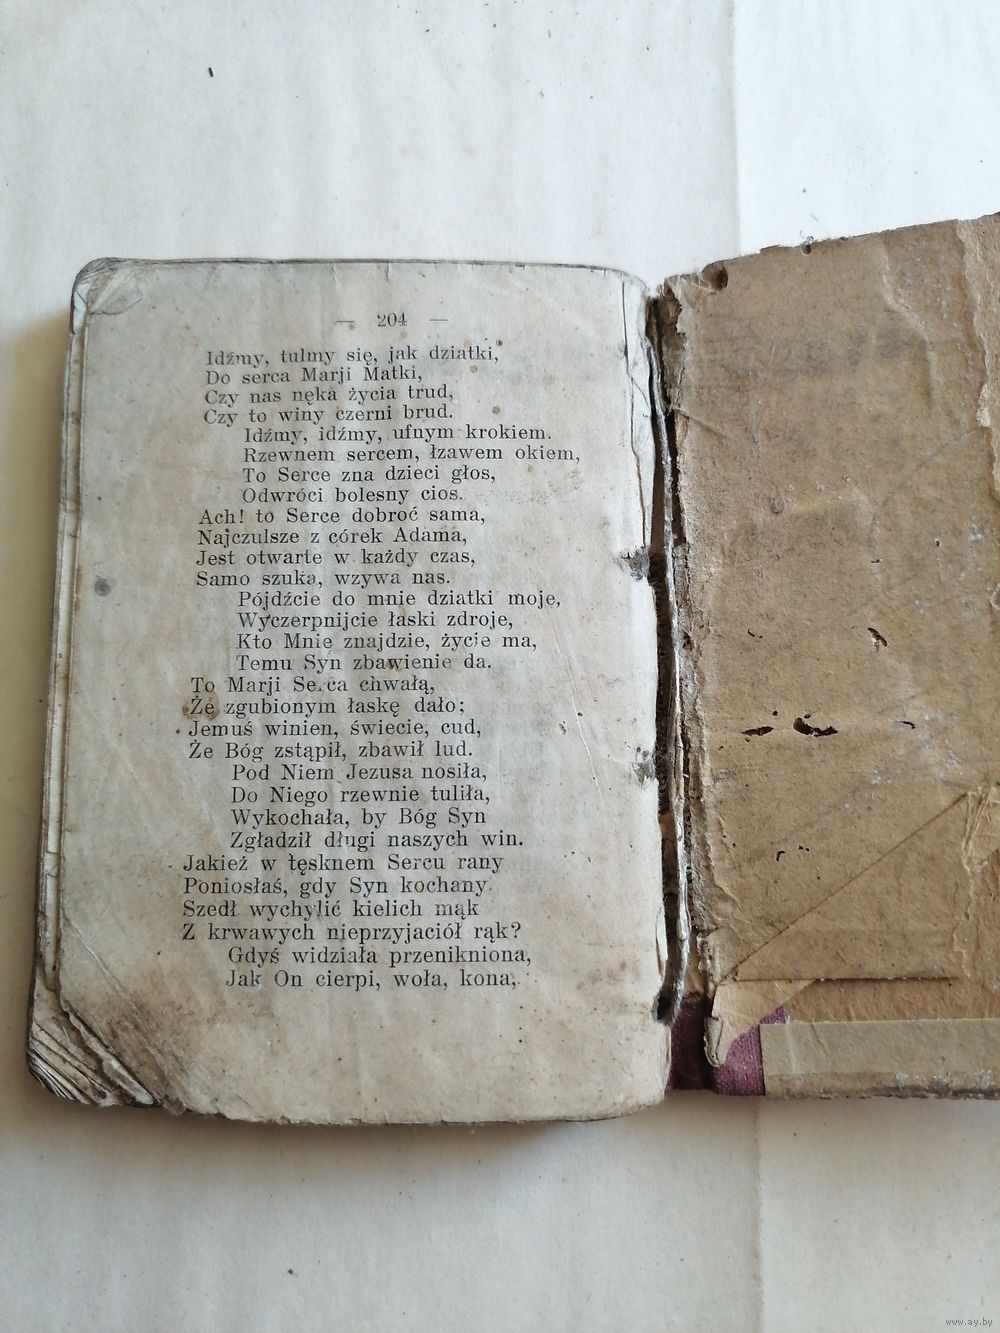 — 204 —
Idźmy, tulmy się, jak dziatki,
Do serca Marji Matki,
Czy nas nęka życia trud,
Czy to winy czerni brud.
Idźmy, idźmy, ufnym krokiem.
Rzewnem sercem, łzawem okiem,
To Serce zna dzieci głos,
Odwróci bolesny cios.
Ach! to Serce dobroć sama,
Najczulsze z córek Adama,
Jest otwarte w każdy czas,
Samo szuka, wzywa nas.
Pójdźcie do mnie dziatki moje,
Wyczerpnijcie łaski zdroje,
Kto Mnie znajdzie, życie ma,
Temu Syn zbawienie da.
To Marji Serca chwałą,
Że zgubionym łaskę dało;
Jemuś winien, świecie, cud,
Że Bóg zstąpił, zbawił lud.
Pod Niem Jezusa nosiła,
Do Niego rzewnie tuliła,
Wykochała, by Bóg Syn
Zgładził długi naszych win.
Jakież w tęsknem Sercu rany
Poniosłaś, gdy Syn kochany
Szedł wychylić kielich mąk
Z krwawych nieprzyjaciół rąk?
Gdyś widziała przenikniona,
Jak On cierpi, woła, kona,
www.ay.by